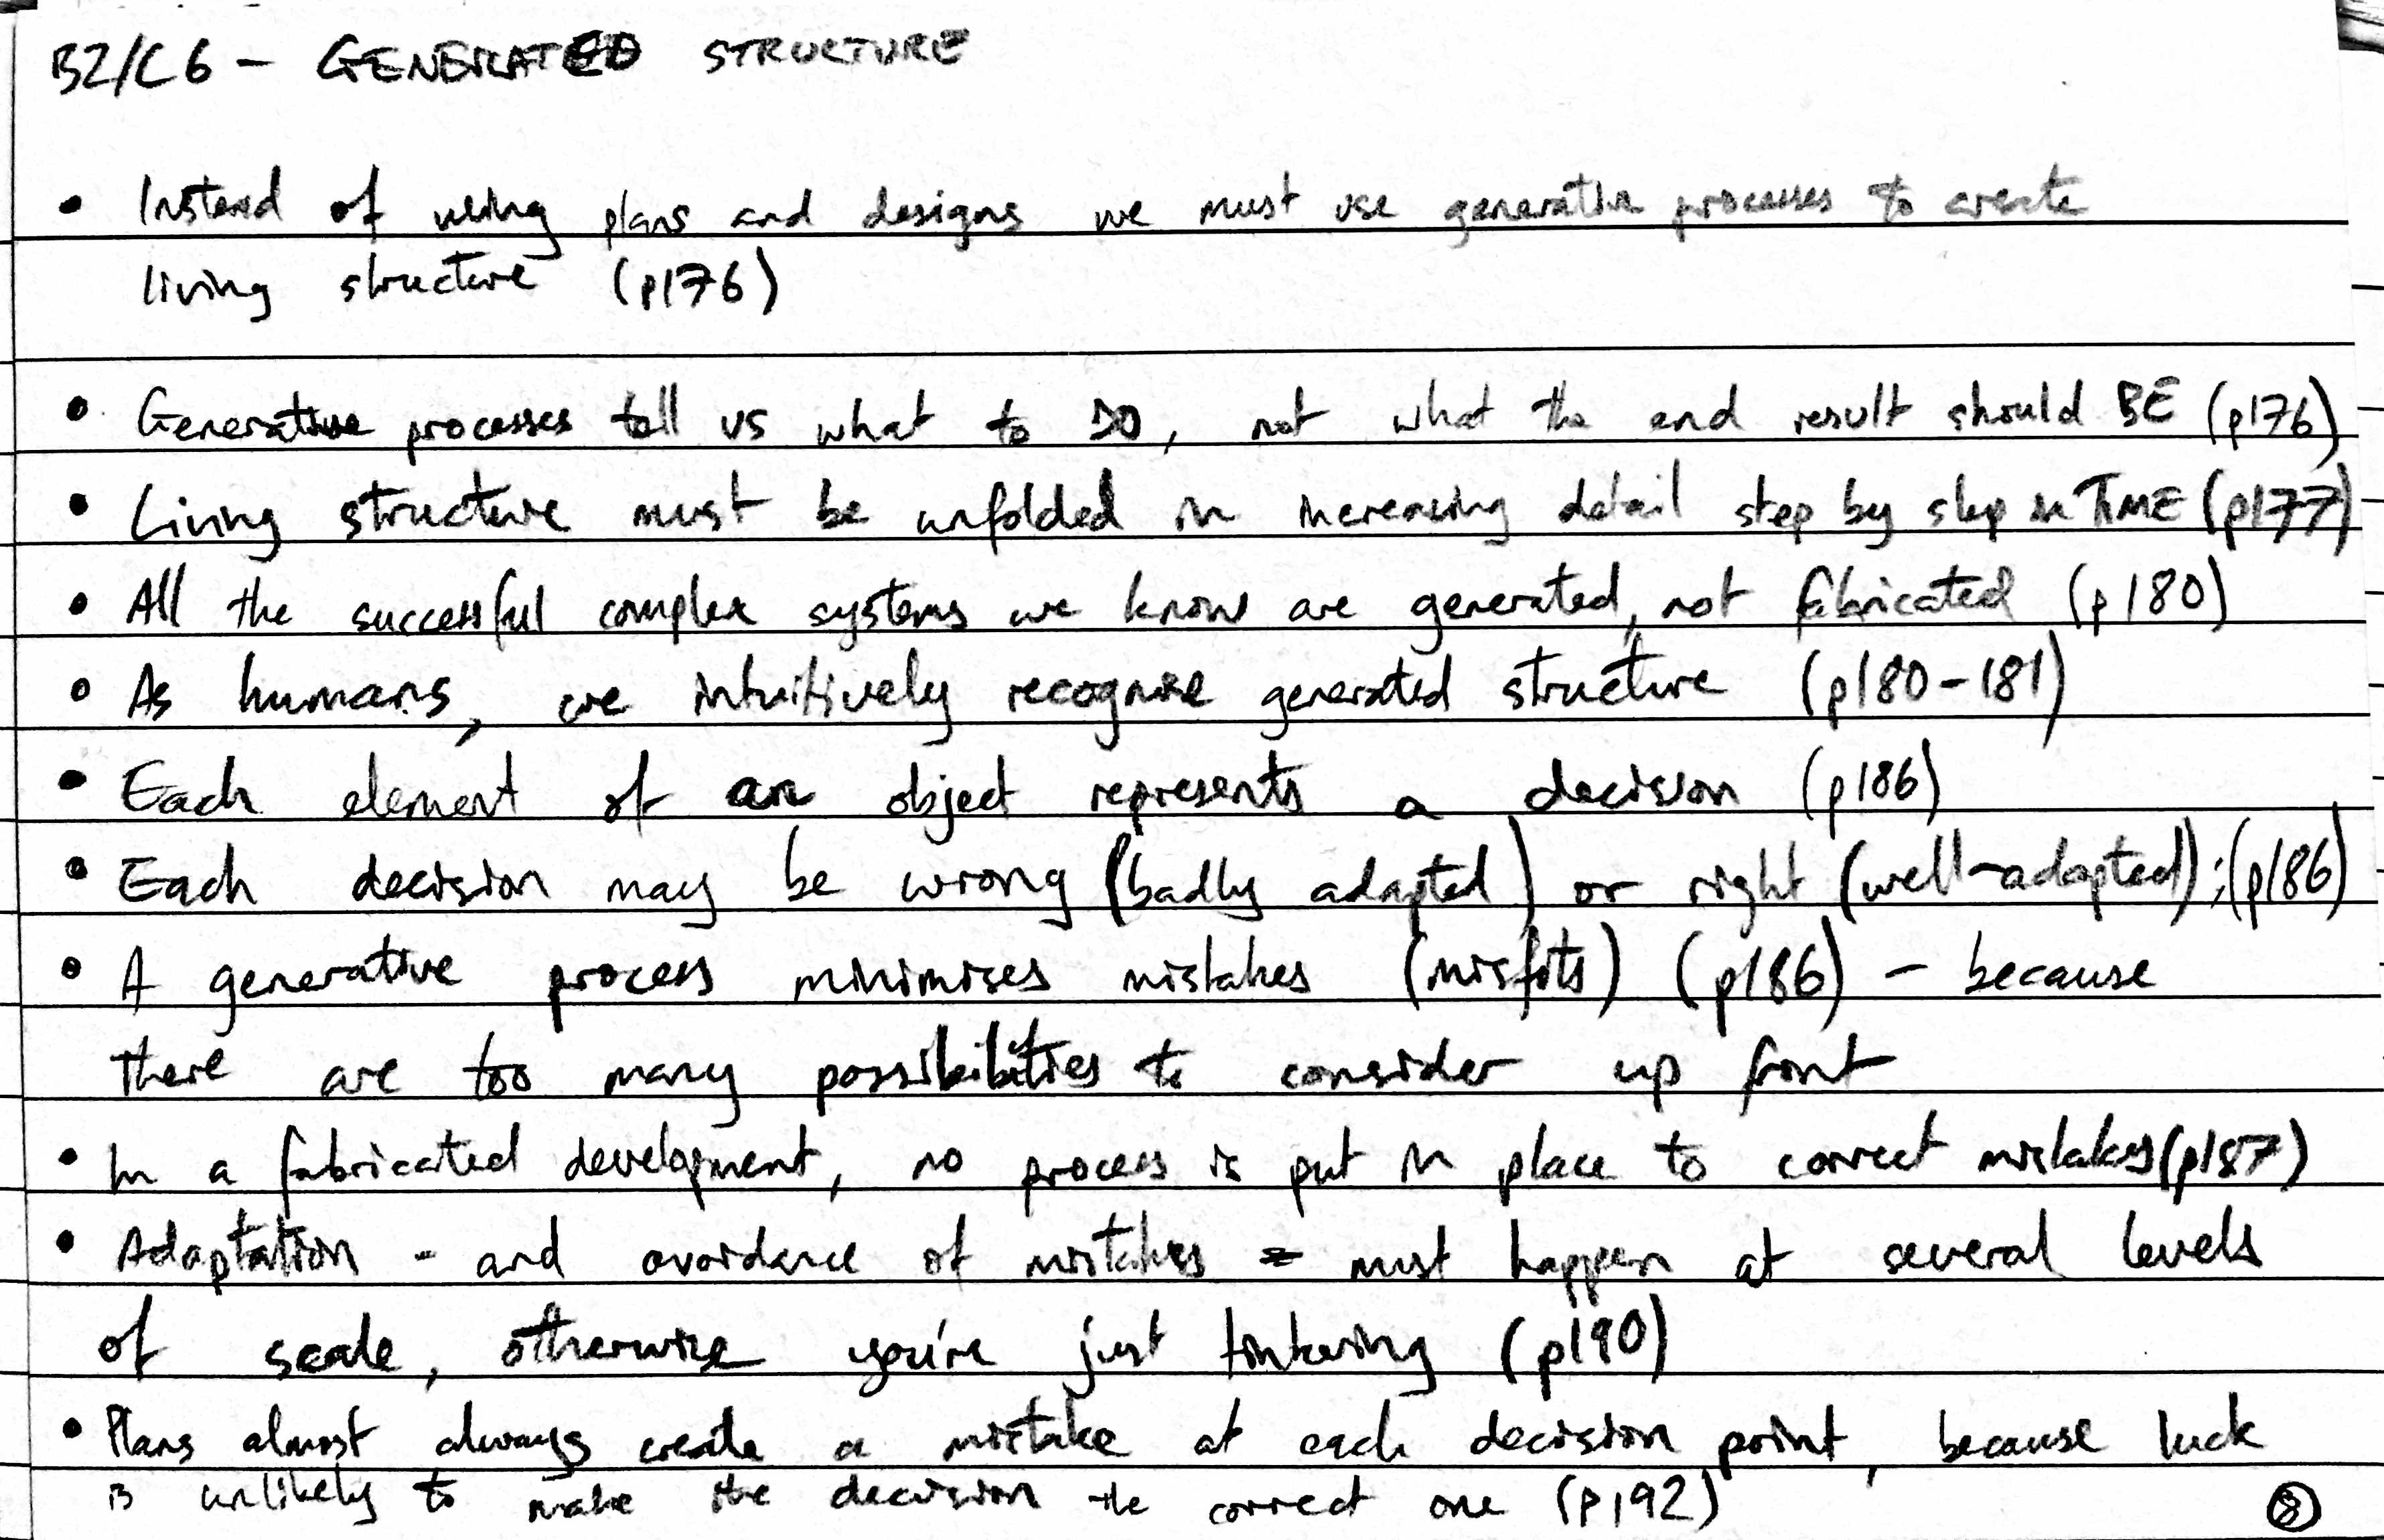 B2/C6 - GENERATED STRUCTURE
• Instead of using plans and designs we must use generative processes to create
living structure (p176)
• Generative processes tell us what to DO, not what the end result should BE (p176)
• Living structure must be unfolded in increasing detail step by step in TIME (p177)
• All the successful complex systems we know are generated, not fabricated (p180)
• As humans, we intuitively recognise generated structure (p180-181)
• Each element of an object represents a decision (p186)
• Each decision may be wrong (badly adapted) or right (well-adapted); (p186)
• A generative process minimises mistakes (misfits) (p186) - because
there are too many possibilities to consider up front
• In a fabricated development, no process is put in place to correct mistakes (p187)
• Adaptation - and avoidance of mistakes - must happen at several levels
of scale, otherwise you're just tinkering (p190)
• Plans almost always create a mistake at each decision point, because luck
is unlikely to make the decision the correct one (p192)
8